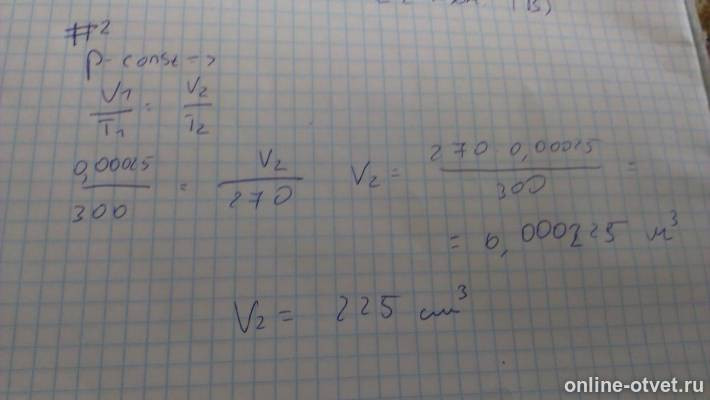 #2
p - const ->
V1/T1 = V2/T2
0,00025/300 = V2/270 V2 = 270 0,00025/300 =
= 0,000225 м³
V2 = 225 см³
online-otvet.ru